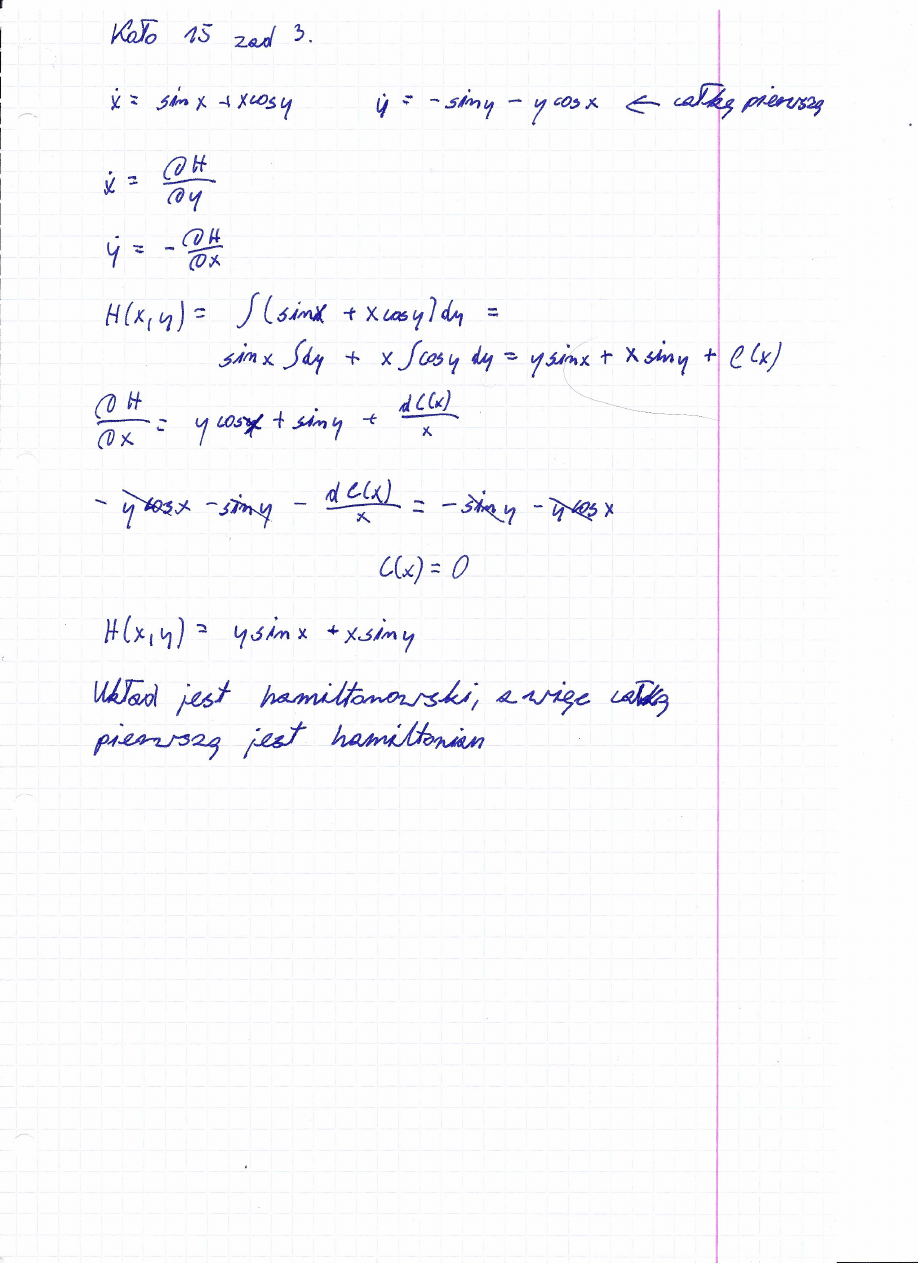 Koło 15 zad 3.
ẋ = sin x + x cos y    ẏ = - sin y - y cos x ← całką pierwszą
ẋ = ∂H/∂y
ẏ = - ∂H/∂x
H(x,y) = ∫(sin x + x cos y) dy =
sin x ∫dy + x ∫cos y dy = y sin x + x sin y + C(x)
∂H/∂x = y cos x + sin y + dC(x)/x
- y cos x - sin y - dC(x)/x = - sin y - y cos x
C(x) = 0
H(x,y) = y sin x + x sin y
Układ jest hamiltonowski, a więc całką
pierwszą jest hamiltonian